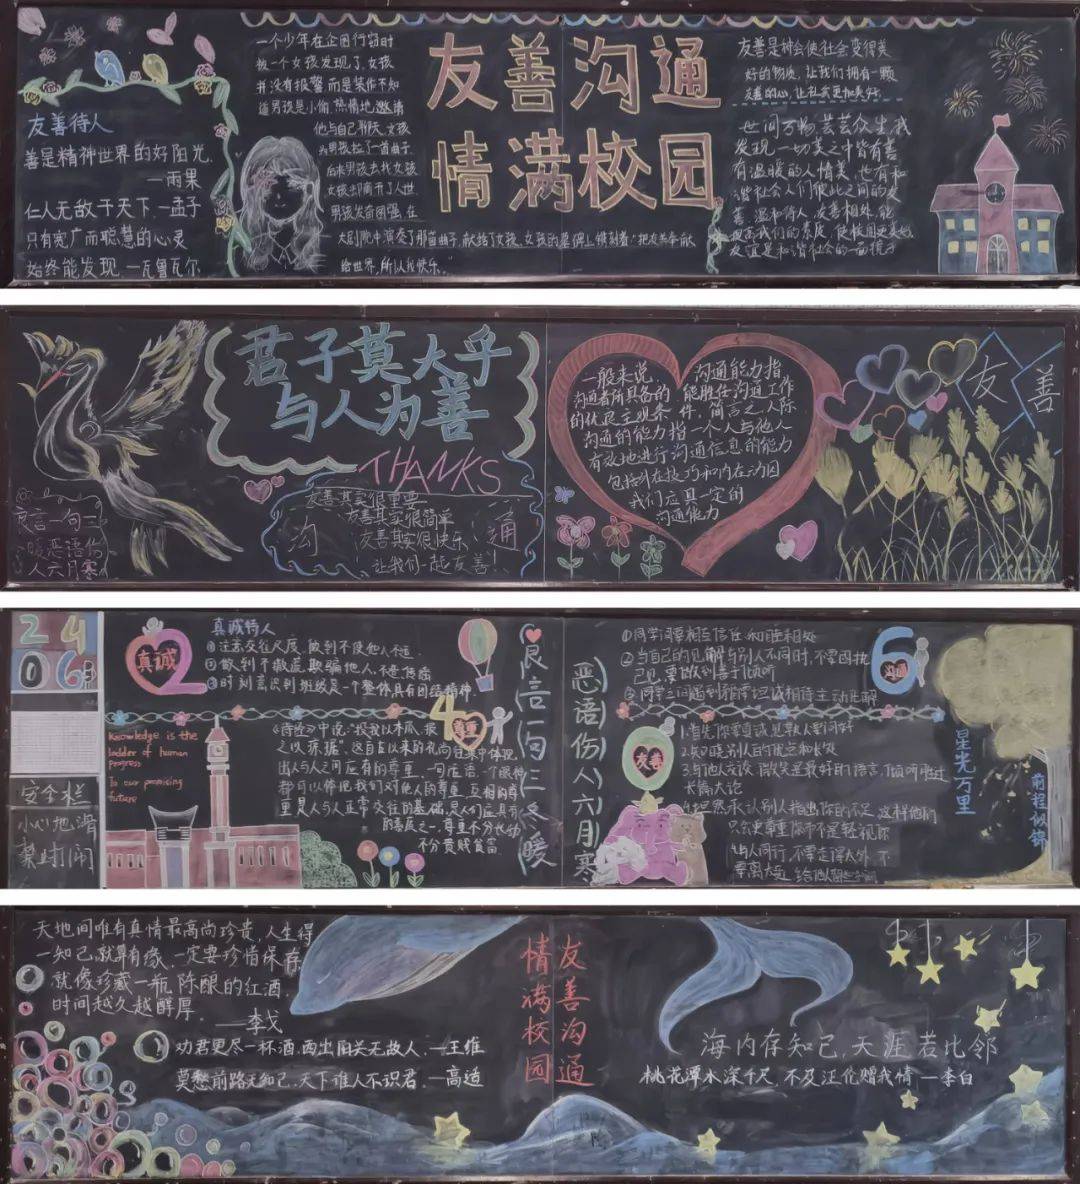 友善待人
善是精神世界的好阳光.
—雨果
仁人无敌于天下.—孟子
只有宽广而聪慧的心灵
始终能发现.—瓦鲁瓦尔
一个少年在企图行窃时
被一个女孩发现了,女孩
并没有报警而是装作不知
道男孩是小偷,热情地邀请
他与自己聊天,女孩
为男孩拉了一首曲子,
后来男孩去找女孩
女孩却离开了人世
男孩发奋图强,在
大剧院中演奏了那首曲子,献给了女孩,女孩的墓碑上镌刻着:"把友共奉献
给世界,所以我快乐."
友善沟通
情满校园
友善是种会使社会变得美
好的物质,让我们拥有一颗
友善的心,让社会更加美好.
世间万物,芸芸众生,我
发现一切美之中皆有善
有温暖的人情美,也有和
谐社会人们彼此之间的友
善,温和待人,友善相处,能
提高我们的素质,使校园更美好
友谊是和谐社会的一面镜子
君子莫大乎
与人为善
THANKS
良言一句三冬
暖恶语伤
人六月寒
沟通
友善其实很重要
友善其实很简单
友善其实很快乐
让我们一起友善!
一般来说,沟通能力指
沟通者所具备的能胜任沟通工作
的优良主观条件.简言之,人际
沟通的能力指一个人与他人
有效地进行沟通信息的能力
包括外在技巧和内在动因
我们应具一定的
沟通能力
友善
24
06
安全栏
小心地滑
禁止打闹
真诚
真诚待人
①注意交往尺度,做到不使他人不适.
②做到不撒谎,欺骗他人,不使传谣
③时刻意识到班级是一个整体具有团结精神
Knowledge is the
ladder of human
progress
To our promising
future
尊重
《诗经》中说:"投我以木瓜,报
之以琼琚".这自古以来的礼尚往来中体现
出人与人之间应有的尊重,一句应答,一个眼神
都可以体现我们对他人的尊重,互相的尊
重是人与人正常交往的基础,是人们应具有
的素质之一,尊重不分长幼
不分贵贱贫富.
良言一句三冬暖
恶语伤人六月寒
①同学间要相互信任,和睦相处
②当自己的见解与别人不同时,不要固执
己见,要做到善于倾听
③同学之间遇到矛盾要坦诚相待主动和解
沟通
友善
1.首先你要真诚,见熟人要问好
2.知晓别人的优点和长处
3.与他人交谈,微笑是最好的语言,倾听胜过
长篇大论
4.坦然承认别人指出你的不足,这样他们
只会更尊重你而不是轻视你
5.与人同行,不要走得太外,不
要离太近,给他人留些空间
星光万里
前程似锦
天地间唯有真情最高尚珍贵,人生得
一知己就算有缘,一定要珍惜保存
就像珍藏一瓶陈酿的红酒,
时间越久越醇厚.
——李戈
劝君更尽一杯酒,西出阳关无故人.—王维
莫愁前路无知己,天下谁人不识君.—高适
友善沟通
情满校园
海内存知己,天涯若比邻
桃花潭水深千尺,不及汪伦赠我情—李白